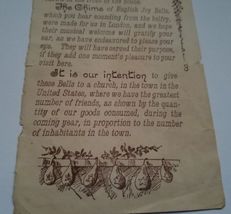 The Chime of English Joy Bells,
which you hear sounding from the belfry,
were made for us in London, and we hope
their musical welcome will gratify your
ear, as we have endeavored to please your
eye. They have served their purpose,
if they add one moment's pleasure to your
visit here.
It is our intention to give
these Bells to a church, in the town in the
United States, where we have the greatest
number of friends, as shown by the quan-
tity of our goods consumed, during the
coming year, in proportion to the number
of inhabitants in the town.